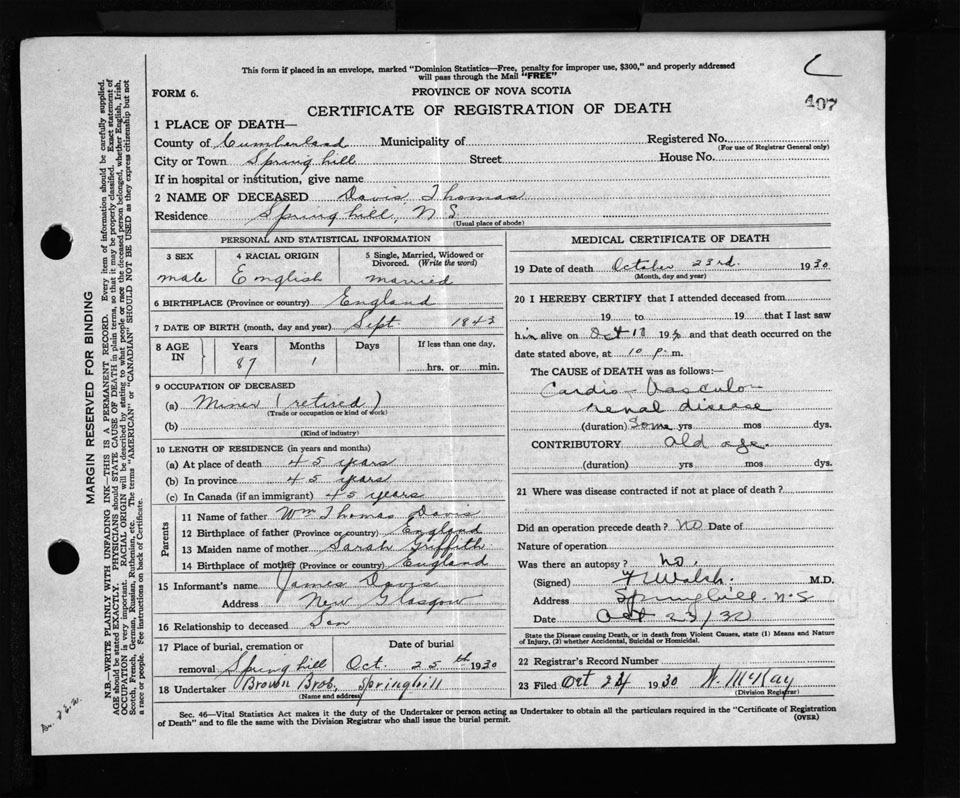 This form if placed in an envelope, marked "Dominion Statistics—Free, penalty for improper use, $300," and properly addressed
will pass through the Mail "FREE"
407
FORM 6.
PROVINCE OF NOVA SCOTIA
CERTIFICATE OF REGISTRATION OF DEATH
1 PLACE OF DEATH—
County of Cumberland Municipality of Registered No.
(For use of Registrar General only)
City or Town Spring hill Street House No.
If in hospital or institution, give name
2 NAME OF DECEASED Davis Thomas
Residence Spring hill, N S
(Usual place of abode)
PERSONAL AND STATISTICAL INFORMATION
3 SEX 4 RACIAL ORIGIN 5 Single, Married, Widowed or
Divorced. (Write the word)
male English married
6 BIRTHPLACE (Province or country) England
7 DATE OF BIRTH (month, day and year) Sept. 1843
8 AGE IN Years Months Days If less than one day,
87 1 hrs. or min.
9 OCCUPATION OF DECEASED
(a) Miner (retired)
(Trade or occupation or kind of work)
(b)
(Kind of industry)
10 LENGTH OF RESIDENCE (in years and months)
(a) At place of death 45 years
(b) In province 45 years
(c) In Canada (if an immigrant) 45 years
Parents
11 Name of father Wm Thomas Davis
12 Birthplace of father (Province or country) England
13 Maiden name of mother Sarah Griffith
14 Birthplace of mother (Province or country) England
15 Informant's name James Davis
Address New Glasgow
16 Relationship to deceased Son
17 Place of burial, cremation or Date of burial
removal Spring hill Oct. 25th 1930
18 Undertaker Brown Bros, Springhill
(Name and address)
MEDICAL CERTIFICATE OF DEATH
19 Date of death October 23rd. 1930
(Month, day and year)
20 I HEREBY CERTIFY that I attended deceased from
19 to 19 that I last saw
him alive on Oct 18 1930 and that death occurred on the
date stated above, at 10 p. m.
The CAUSE of DEATH was as follows:—
Cardio-Vascular
renal disease
(duration) Some yrs mos dys.
CONTRIBUTORY old age.
(duration) yrs mos dys.
21 Where was disease contracted if not at place of death?
Did an operation precede death? no Date of
Nature of operation
Was there an autopsy? no.
(Signed) Walsh. M.D.
Address Springhill. N.S
Date Oct 23/30
State the Disease causing Death, or in death from Violent Causes, state (1) Means and Nature
of Injury, (2) whether Accidental, Suicidal or Homicidal.
22 Registrar's Record Number
23 Filed Oct 24 1930 McKay
(Division Registrar)
Sec. 46—Vital Statistics Act makes it the duty of the Undertaker or person acting as Undertaker to obtain all the particulars required in the "Certificate of Registration
of Death" and to file the same with the Division Registrar who shall issue the burial permit.
(OVER)
MARGIN RESERVED FOR BINDING
N.B.—WRITE PLAINLY WITH UNFADING INK—THIS IS A PERMANENT RECORD. Every item of information should be carefully supplied.
AGE should be stated EXACTLY. PHYSICIANS should STATE CAUSE OF DEATH in plain terms, so that it may be properly classified. Exact statement of
OCCUPATION is very important. RACIAL ORIGIN will be described by stating to what people or race the deceased person belonged, whether English, Irish,
Scotch, French, German, Russian, Ruthenian, etc. The terms "AMERICAN" or "CANADIAN" SHOULD NOT BE USED as they express citizenship but not
a race or people. See instructions on back of Certificate.